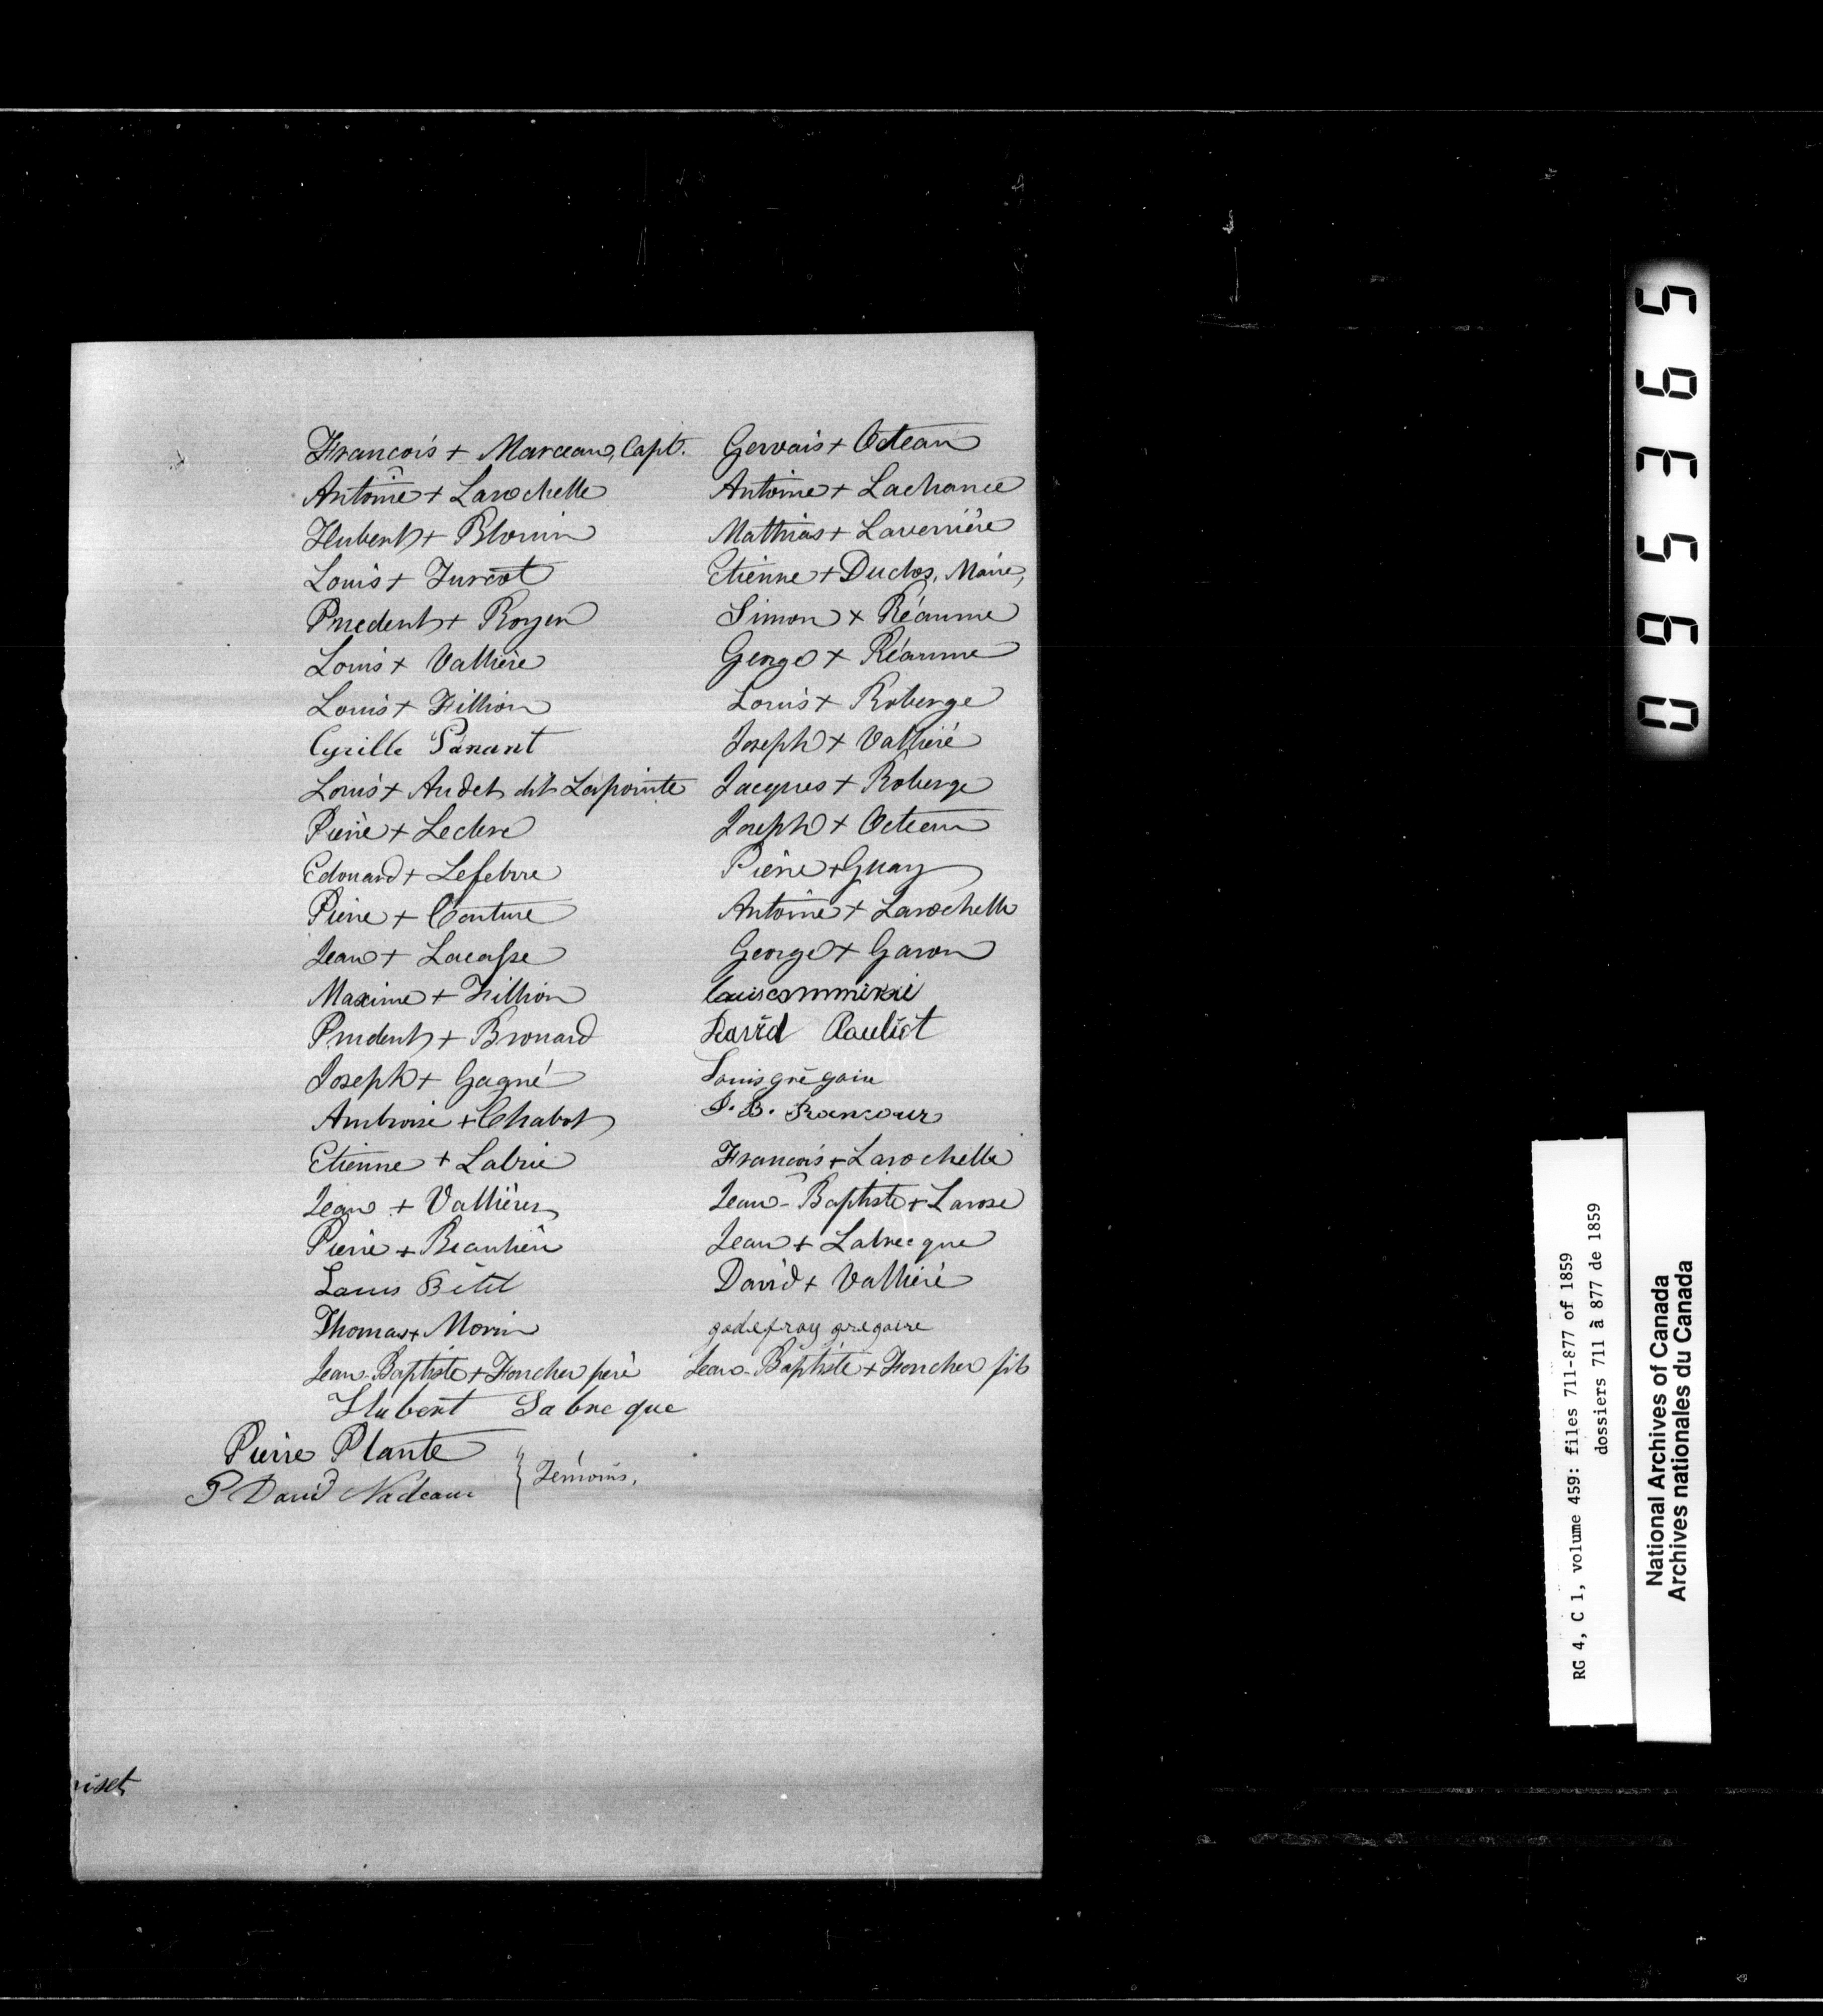 François + Marceau, Capt.
Antoine + Larochelle
Hubert + Blouin
Louis + Turcot
Prudent + Royer
Louis + Vallière
Louis + Fillion
Cyrille Parant
Louis + Audet dit Lapointe
Pierre + Leclerc
Edouard + Lefebvre
Pierre + Couture
Jean + Lacasse
Maxime + Fillion
Prudent + Brouard
Joseph + Gagné
Ambroise + Chabot
Etienne + Labrie
Jean + Vallières
Pierre + Beaulieu
Louis Bétil
Thomas + Morin
Jean-Baptiste + Foucher père
Hubert Labrecque
Pierre Plante
P David Nadeau
Témoins.
Gervais + Octeau
Antoine + Lachance
Mathias + Laverrière
Etienne + Duclos, Maire,
Simon + Réaume
George + Réaume
Louis + Roberge
Joseph + Vallière
Jacques + Roberge
Joseph + Octeau
Pierre + Guay
Antoine + Larochelle
George + Garon
David Pouliot
Louis grégoire
J. B. Rancour
François + Larochelle
Jean-Baptiste + Larose
Jean + Labrecque
David + Vallière
godefroy gregoire
Jean-Baptiste + Foucher fils
095365
RG 4, C 1, volume 459: files 711-877 of 1859
dossiers 711 à 877 de 1859
National Archives of Canada
Archives nationales du Canada